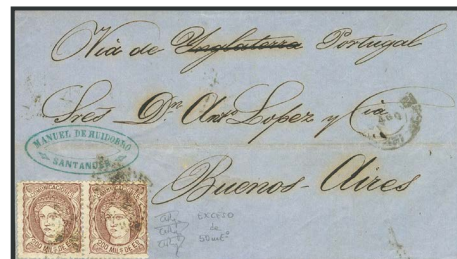 Via de Ynglaterra Portugal
Sres Dn Anto Lopez y Cia
MANUEL DE HUIDOBRO
SANTANDER
Buenos-Aires
EXCESO
de
50 mts
200 MILS DE E.
200 MILS DE E.